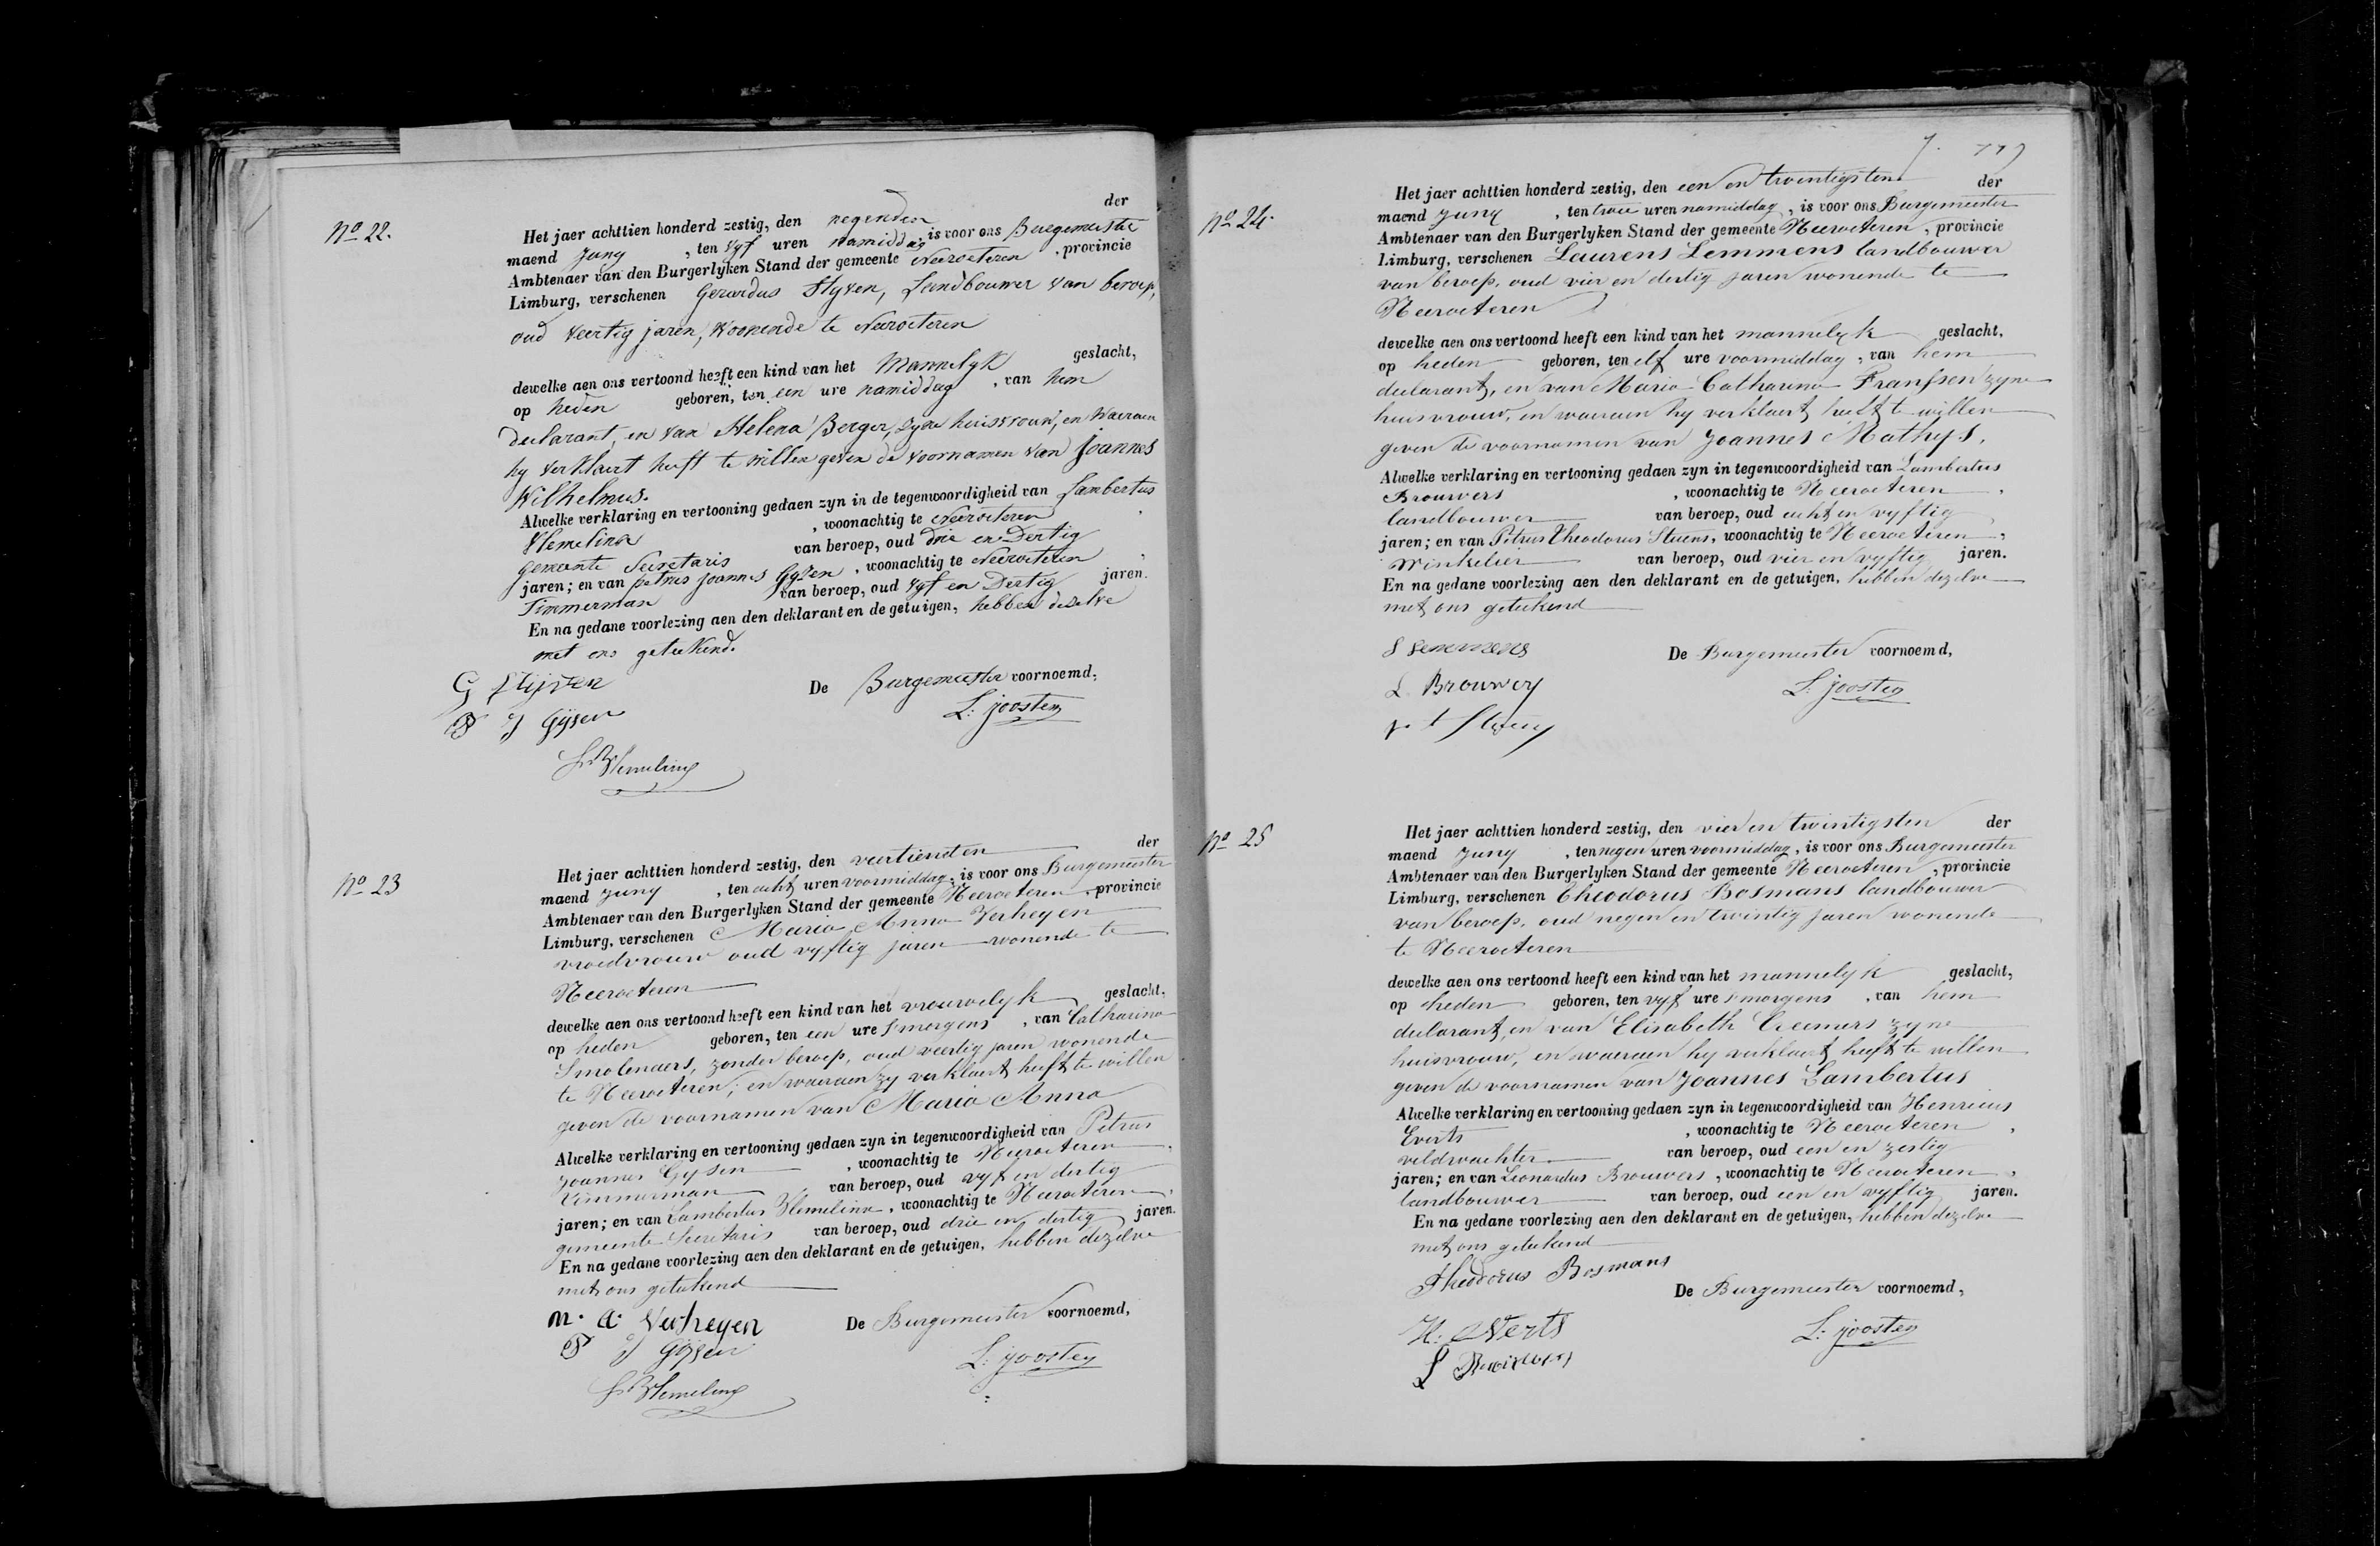 No 22.
Het jaer achttien honderd zestig, den negenden der
maend Juny , ten vyf uren namiddag, is voor ons Burgemeester
Ambtenaer van den Burgerlyken Stand der gemeente Neeroeteren , provincie
Limburg, verschenen Gerardus Styven, Landbouwer van beroep,
oud veertig jaren, Woonende te Neeroeteren
dewelke aen ons vertoond heeft een kind van het Mannelyk geslacht,
op heden geboren, ten een ure namiddag , van hem
declarant, en van Helena Berger, zyne huisvrouw, en Waeraen
hy verklaert heeft te willen geven de voornamen van Joannes
Wilhelmus.
Alwelke verklaring en vertooning gedaen zyn in de tegenwoordigheid van Lambertus
Vlemelinx , woonachtig te Neeroeteren ,
gemeente Secretaris van beroep, oud drie en Dertig
jaren; en van petrus joannes Gyzen , woonachtig te Neeroeteren ,
Timmerman van beroep, oud vyf en Dertig jaren.
En na gedane voorlezing aen den deklarant en de getuigen, hebben dezelve
met ons geteekend.
G Stijven
De Burgemeester voornoemd,
P J Gijsen
L: joosten
No 23
Het jaer achttien honderd zestig, den veertiensten der
maend Juny , ten acht uren voormiddag, is voor ons Burgemeester
Ambtenaer van den Burgerlyken Stand der gemeente Neeroeteren , provincie
Limburg, verschenen Maria Anna Verheyen
vroedvrouw oud vyftig jaren wonende te
Neeroeteren
dewelke aen ons vertoond heeft een kind van het vrouwelyk geslacht,
op heden geboren, ten een ure smorgens , van Catharina
Smolenaers, zonder beroep, oud veertig jaren wonende
te Neeroeteren; en waeraen zy verklaert heeft te willen
geven de voornamen van Maria Anna
Alwelke verklaring en vertooning gedaen zyn in tegenwoordigheid van Petrus
Joannes Gysen , woonachtig te Neeroeteren ,
Timmerman van beroep, oud vyf en dertig
jaren; en van Lambertus Vlemelinx , woonachtig te Neeroeteren ,
gemeente Secretaris van beroep, oud drie en dertig jaren.
En na gedane voorlezing aen den deklarant en de getuigen, hebben dezelve
met ons geteekend
M. A. Verheyen
De Burgemeester voornoemd,
P J Gijsen
L: joosten
No 24.
Het jaer achttien honderd zestig, den een en twintigsten der
maend Juny , ten twee uren namiddag , is voor ons Burgemeester
Ambtenaer van den Burgerlyken Stand der gemeente Neeroeteren , provincie
Limburg, verschenen Laurens Lemmens landbouwer
van beroep, oud vier en dertig jaren wonende te
Neeroeteren
dewelke aen ons vertoond heeft een kind van het mannelyk geslacht,
op heden geboren, ten elf ure voormiddag , van hem
declarant, en van Maria Catharina Franssen zyne
huisvrouw, en waeraen hy verklaert heeft te willen
geven de voornamen van Joannes Mathys.
Alwelke verklaring en vertooning gedaen zyn in tegenwoordigheid van Lambertus
Brouwers , woonachtig te Neeroeteren ,
landbouwer van beroep, oud acht en vyftig
jaren; en van Petrus Theodorus Stevens , woonachtig te Neeroeteren ,
Winkelier van beroep, oud vier en vyftig jaren.
En na gedane voorlezing aen den deklarant en de getuigen, hebben dezelve
met ons geteekend
De Burgemeester voornoemd,
L. Brouwers
L: joosten
No 25
Het jaer achttien honderd zestig, den vier en twintigsten der
maend Juny , ten negen uren voormiddag , is voor ons Burgemeester
Ambtenaer van den Burgerlyken Stand der gemeente Neeroeteren , provincie
Limburg, verschenen Theodorus Bosmans landbouwer
van beroep, oud negen en twintig jaren wonende
te Neeroeteren
dewelke aen ons vertoond heeft een kind van het mannelyk geslacht,
op heden geboren, ten vyf ure smorgens , van hem
declarant, en van Elisabeth Creemers zyne
huisvrouw, en waeraen hy verklaert heeft te willen
geven de voornamen van Joannes Lambertus
Alwelke verklaring en vertooning gedaen zyn in tegenwoordigheid van Henricus
Everts , woonachtig te Neeroeteren ,
veldwachter van beroep, oud een en zestig
jaren; en van Leonardus Brouwers , woonachtig te Neeroeteren ,
landbouwer van beroep, oud een en vyftig jaren.
En na gedane voorlezing aen den deklarant en de getuigen, hebben dezelve
met ons geteekend
Theodorus Bosmans
De Burgemeester voornoemd,
H. Everts
L: joosten